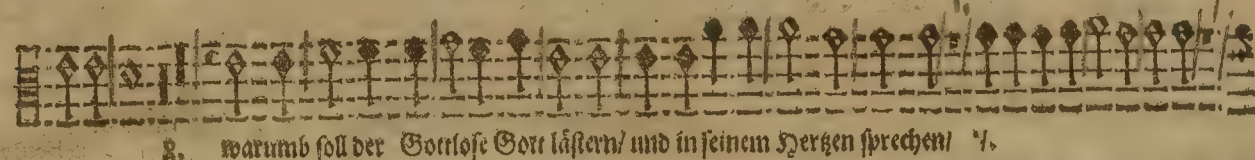 8. warumb soll der Gottlose Gott lästern/ und in seinem Hertzen sprechen/ ij.